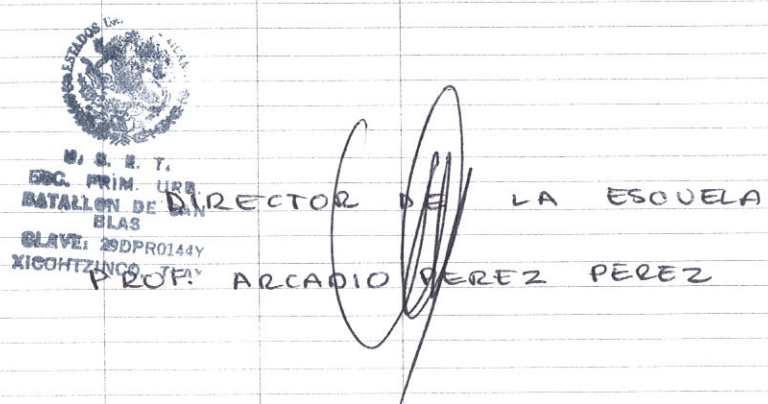 ESTADOS
U. S. E. T.
ESC. PRIM. URB.
BATALLON DE SAN
BLAS
CLAVE: 29DPR0144Y
XICOHTZINCO, TLAX
DIRECTOR DE LA ESCUELA
PROF. ARCADIO PEREZ PEREZ